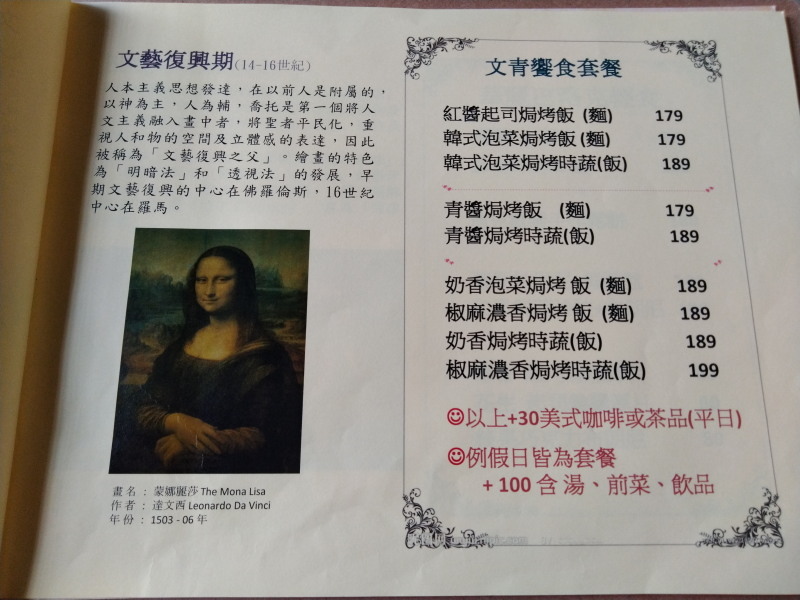 文藝復興期(14-16世紀)
人本主義思想發達，在以前人是附屬的，
以神為主，人為輔，喬托是第一個將人
文主義融入畫中者，將聖者平民化，重
視人和物的空間及立體感的表達，因此
被稱為「文藝復興之父」。繪畫的特色
為「明暗法」和「透視法」的發展，早
期文藝復興的中心在佛羅倫斯，16世紀
中心在羅馬。
畫名 : 蒙娜麗莎 The Mona Lisa
作者 : 達文西 Leonardo Da Vinci
年份 : 1503 - 06 年
文青饗食套餐
紅醬起司焗烤飯 (麵) 179
韓式泡菜焗烤飯 (麵) 179
韓式泡菜焗烤時蔬(飯) 189
青醬焗烤飯 (麵) 179
青醬焗烤時蔬(飯) 189
奶香泡菜焗烤 飯 (麵) 189
椒麻濃香焗烤 飯 (麵) 189
奶香焗烤時蔬(飯) 189
椒麻濃香焗烤時蔬(飯) 199
☺以上+30美式咖啡或茶品(平日)
☺例假日皆為套餐
+ 100 含 湯、前菜、飲品